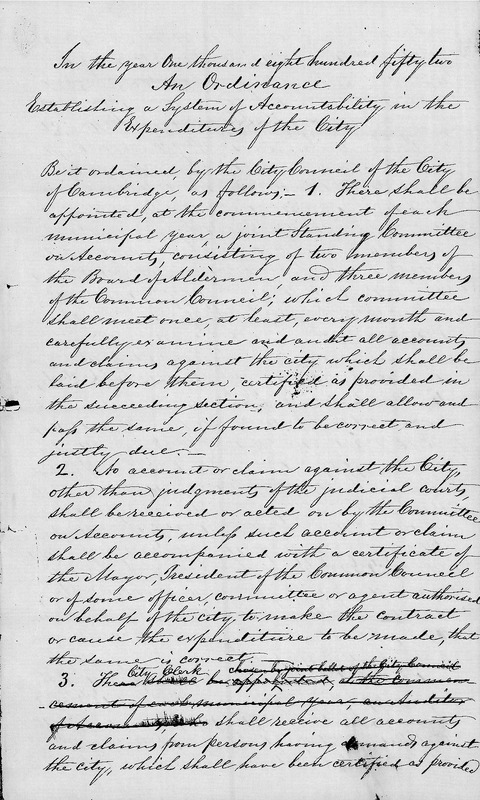 In the year One thousand eight hundred fifty two
An Ordinance
Establishing a System of Accountability in the
Expenditures of the City
Be it ordained, by the City Council of the City
of Cambridge, as follows,– 1. There shall be
appointed, at the commencement of each
municipal year, a joint Standing Committee
on Accounts, consisting of two members of
the Board of Aldermen, and three members
of the Common Council; which committee
shall meet once, at least, every month and
carefully examine and audit all accounts
and claims against the city which shall be
laid before them, certified as provided in
the succeeding section, and shall allow and
pass the same, if found to be correct and
justly due.–
2. No account or claim against the City,
other than judgments of the judicial courts,
shall be received or acted on by the Committee
on Accounts, unless such account or claim
shall be accompanied with a certificate of
the Mayor, President of the Common Council
or of some officer, committee or agent authorised
on behalf of the city, to make the contract
or cause the expenditure to be made, that
the same is correct.
City Clerk chosen by joint ballot of the City Council
3. There shall be appointed, at the commen-
cement of each municipal year, an Auditor
of Accounts, who shall receive all accounts
and claims from persons having demands against
the city, which shall have been certified as provided